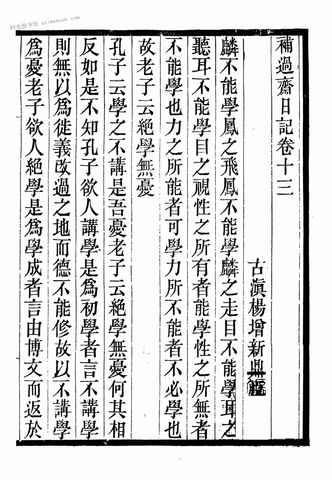 補過齋日記卷十三
古滇楊增新
麟不能學鳳之飛鳳不能學麟之走目不能學耳之
聽耳不能學目之視性之所有者能學性之所無者
不能學也力之所能者可學力所不能者不必學也
故老子云絕學無憂
孔子云學之不講是吾憂老子云絕學無憂何其相
反如是不知孔子欲人講學是為初學者言不講學
則無以為徙義改過之地而德不能修故以不講學
為憂老子欲人絕學是為學成者言由博文而返於